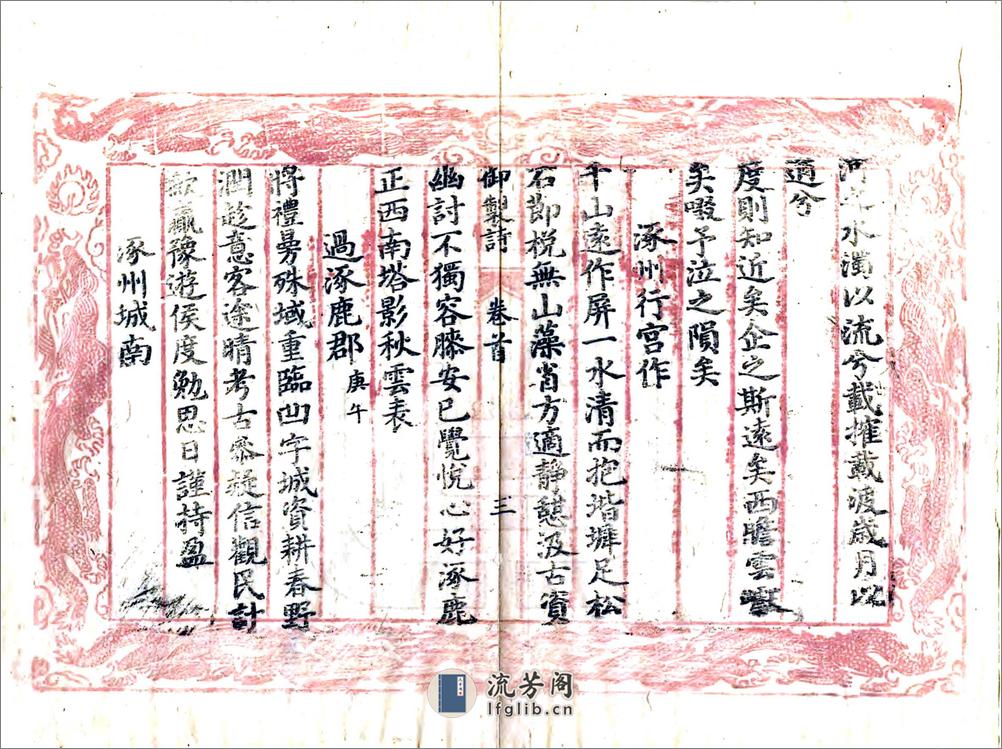 河水水濁以流兮載摧載波歲月以
適兮
度則知近矣企之斯遠矣西瞻雲
矣啜予泣之隕矣
涿州行宫作
千山遠作屏一水清而抱堦墀足松
石節梲無山藻省方適靜憇汲古資
御製詩 卷首 三
幽討不獨容滕安已覺悅心好涿鹿
正西南塔影秋雲表
過涿鹿郡 庚午
將禮曼殊域重臨凹字城資耕春野
潤趁意客途晴考古參疑信觀民計
歉贏豫遊侯度勉思日謹持盈
涿州城南
流芳阁
lfglib.cn